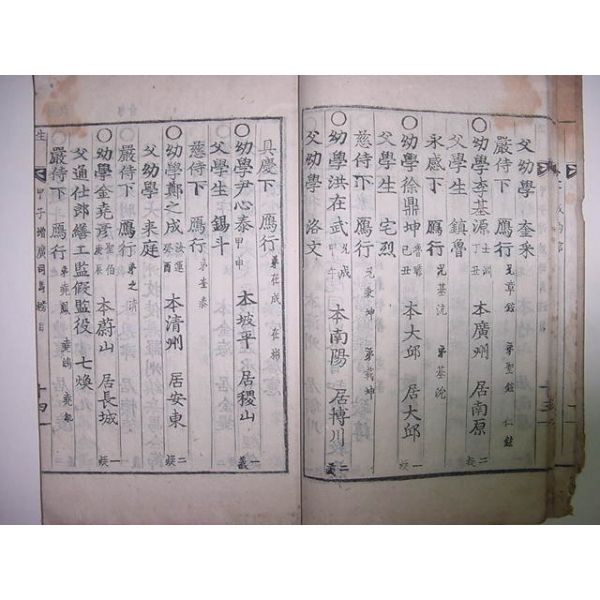 父幼學 奎采
嚴侍下 鴈行 兄章鉉 弟聖鉉 仁鉉
〇幼學李基源 士淵 丁丑 本廣州 居南原 二 疑
父學生 鎮魯
永感下 鴈行 兄基浣 弟基沇
〇幼學徐鼎坤 己丑 本大邱 居大邱 一 疑
父學生 宅烈
慈侍下 鴈行 兄秉坤 弟載坤
〇幼學洪在武 甲午 本南陽 居博川 二 義
父幼學 洛文
具慶下 鴈行 弟在成 在
〇幼學尹心泰 甲申 本坡平 居稷山 一 義
父學生 錫斗
慈侍下 鴈行 弟奎泰
〇幼學鄭之成 癸酉 本清州 居安東 二 疑
父幼學 來庭
嚴侍下 鴈行 弟之
〇幼學金堯彦 聖伯 庚辰 本蔚山 居長城 一 疑
父通仕郎繕工監假監役 七煥
嚴侍下 鴈行 弟堯鳳 堯
甲子增廣司馬榜目 十四